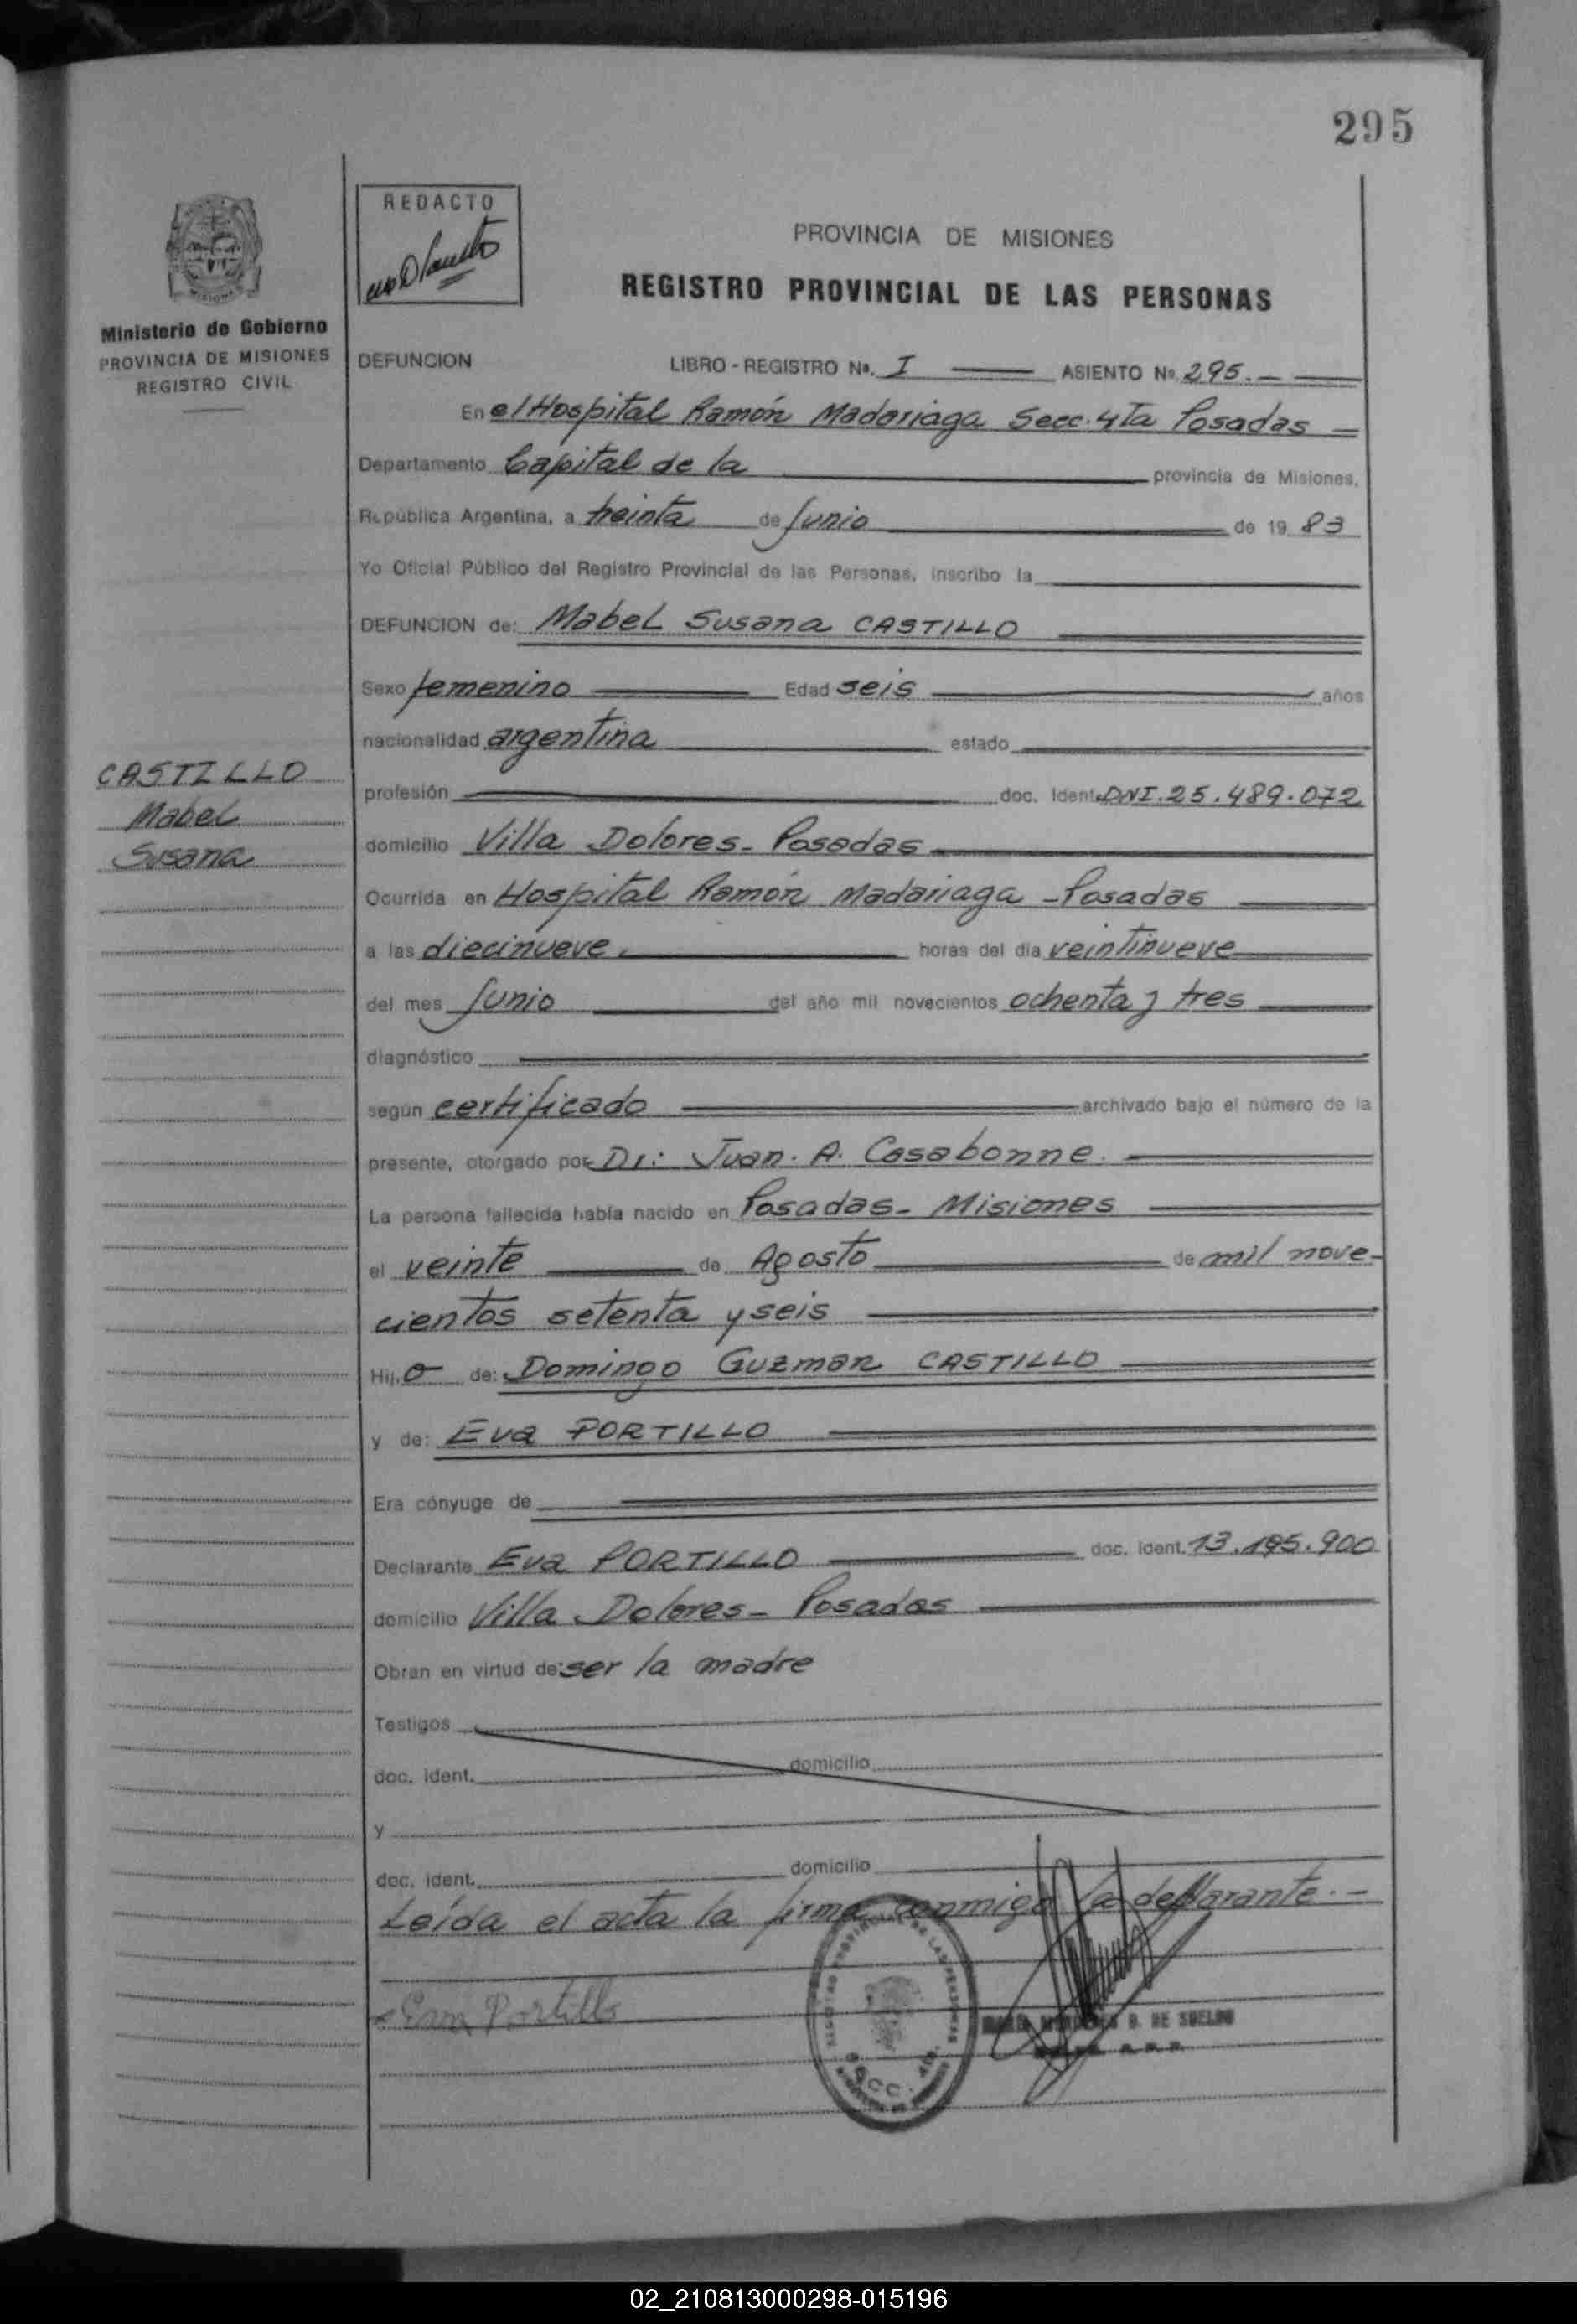 295
REDACTO
PROVINCIA DE MISIONES
REGISTRO PROVINCIAL DE LAS PERSONAS
Ministerio de Gobierno
PROVINCIA DE MISIONES
REGISTRO CIVIL
DEFUNCION LIBRO - REGISTRO Nº. I ASIENTO Nº 295.-
En el Hospital Ramón Madariaga Secc. 4Ta Posadas -
Departamento Capital de la provincia de Misiones,
República Argentina, a treinta de Junio de 1983
Yo Oficial Público del Registro Provincial de las Personas, inscribo la
DEFUNCION de: Mabel Susana CASTILLO
Sexo femenino Edad seis años
nacionalidad argentina estado
CASTILLO
Mabel
Susana
profesión doc. Ident. DNI. 25.489.072
domicilio Villa Dolores - Posadas
Ocurrida en Hospital Ramón Madariaga - Posadas
a las diecinueve horas del día veintinueve
del mes Junio del año mil novecientos ochenta y tres
diagnóstico
según certificado archivado bajo el número de la
presente, otorgado por Dr: Juan. A. Casabonne.
La persona fallecida había nacido en Posadas - Misiones
el veinte de Agosto de mil nove-
cientos setenta y seis
Hij. a de: Domingo Guzman CASTILLO
y de: Eva PORTILLO
Era cónyuge de
Declarante Eva PORTILLO doc. ident. 13.195.900
domicilio Villa Dolores - Posadas
Obran en virtud de: ser la madre
Testigos
doc. ident. domicilio
y
doc. ident. domicilio
Leída el acta la firma conmigo la declarante.-
Portillo
SECC. 4ta.
B. DE SUELDO
02_210813000298-015196